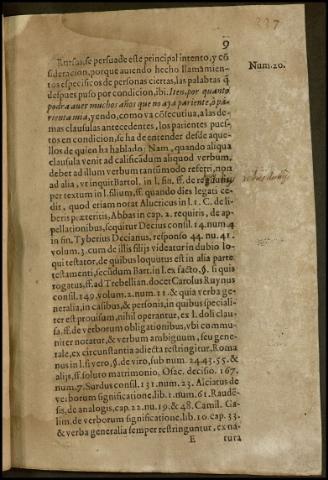 237
9
Rursus, se persuade este principal intento, y cõ
sideracion, porque auiendo hecho llamamien-
tos especificos de personas ciertas, las palabras q̃
despues puso por condicion, ibi. Iten, por quanto
podra auer muchos años que no aya pariente, ò pa-
rienta mia, yendo, como va cõsecutiua, a las de-
mas clausulas antecedentes, los parientes pues-
tos en condicion, se ha de entender desde aque-
llos de quien ha hablado. Nam, quando aliqua
clausula venit ad calificãdum aliquod verbum,
debet ad illum verbum tantũmodo referri, non
ad alia, vt inquit Bartol. in l. fin. ff. de
per textum in l. filium, ff. quando dies legati ce-
dit, quod etiam notat Alueticus in l. 1. C. de li-
beris præteritis, Abbas in cap. 2. requiris, de ap-
pellationibus, sequitur Decius consil. 14. num. 4
in fin. Tyberius Decianus, responso 44. nu. 41.
volum. 3. cum de illis filijs videatur in dubio lo-
qui testator, de quibus loquutus est in alia parte
testamenti, secũdum Bart. in l. ex facto, §. si quis
rogatus, ff. ad Trebellian. docet Carolus Ruynus
consil. 149. volum. 2. num. 11. & quia verba ge-
neralia, in casibus, & personis, in quibus speciali-
ter est prouisum, nihil operantur, ex l. doli clau-
sula, ff. de verborum obligationibus, vbi commu-
niter notatur, & verbum ambiguum, seu gene-
rale, ex circunstantia adiecta restringitur, Roma
nus in l. si vero, §. de viro, sub num. 24. 43. 55. &
alijs, ff. soluto matrimonio, Osasc. decisio. 167.
num. 7. Surdus consil. 131. num. 23. Alciatus de
verborum significatione, lib. 1. num. 61. Raudē-
sis, de analogis, cap. 22. nu. 19. & 48. Camil. Ga-
lin. de verborum significatione, lib. 10. cap. 33.
& verba generalia semper restringuntur, ex na-
E tura
Num. 20.